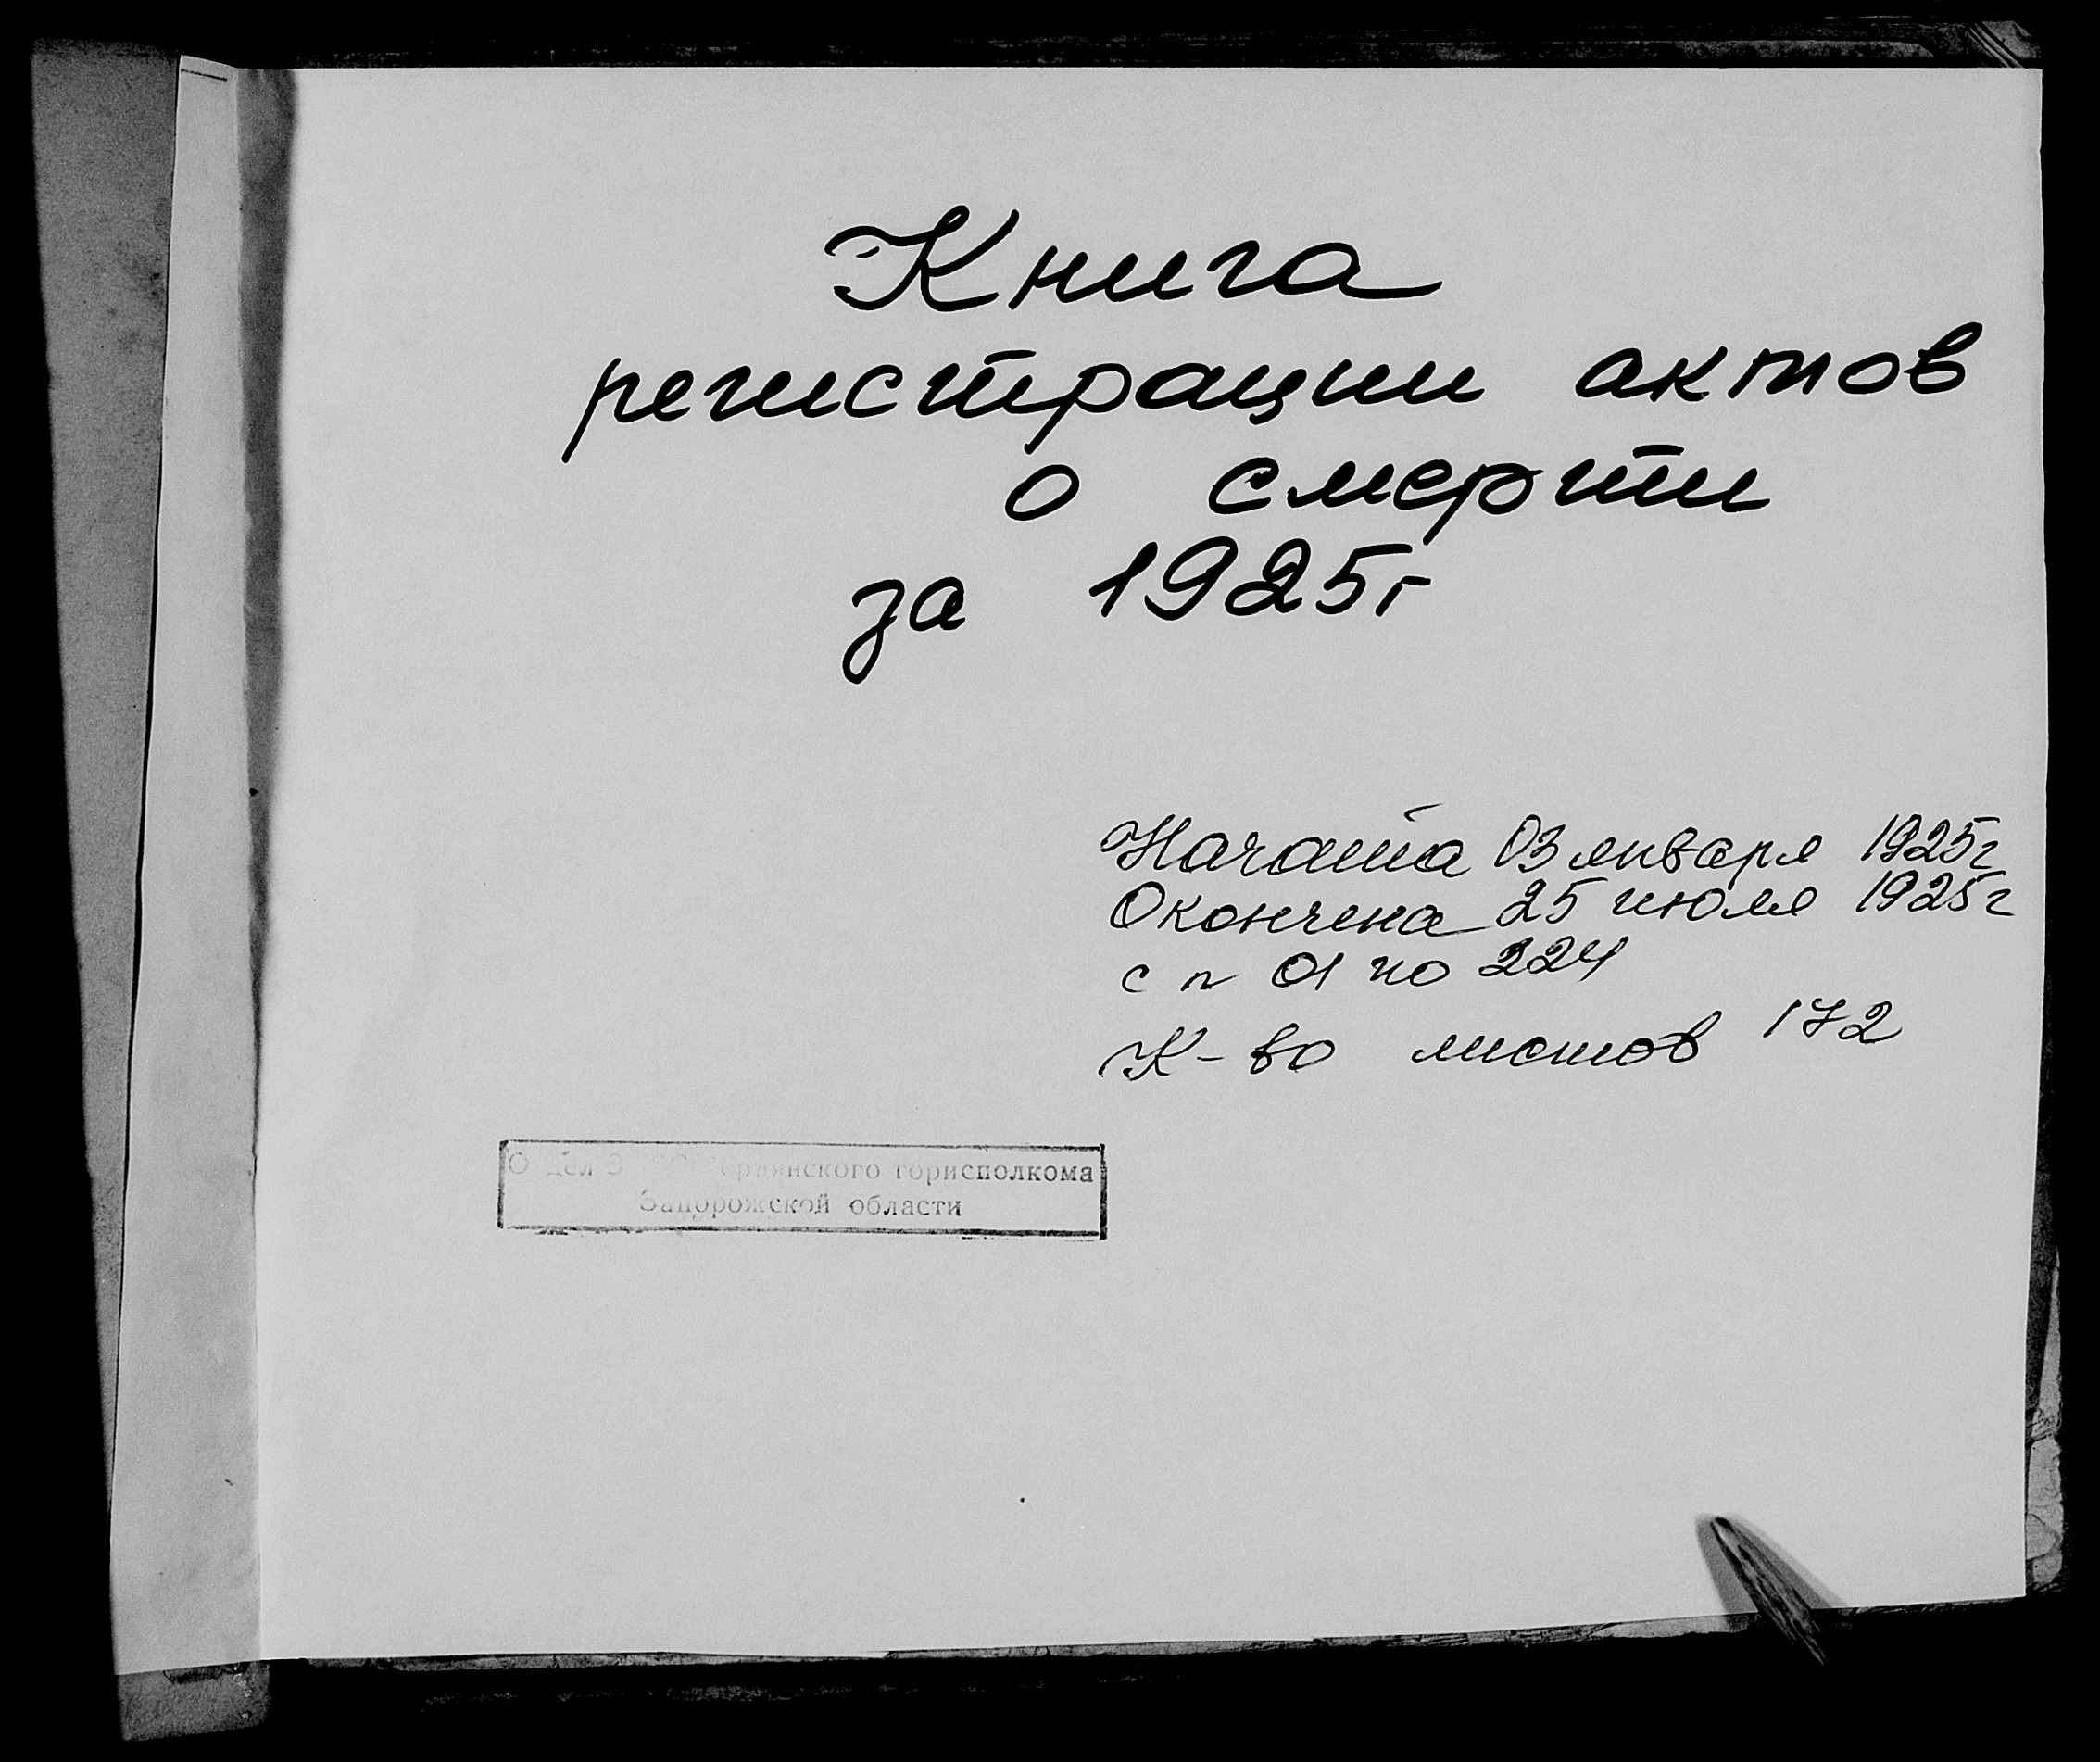 Книга
регистрации актов
о смерти
за 1925г
Начата 03 января 1925г
Окончена 25 июля 1925г
с n 01 по 224
К-во листов 172
Отдел ЗАГС Бердянского горисполкома
Запорожской области